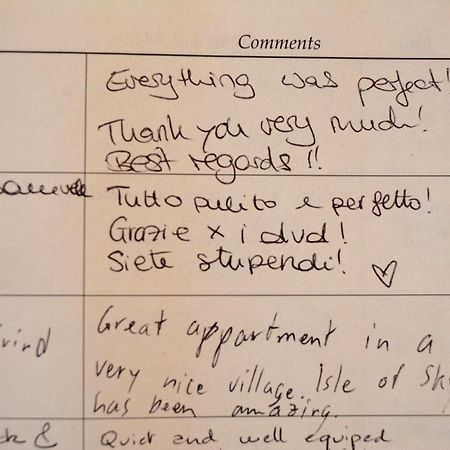 Comments
Everything was perfect!
Thank you very much!
Best regards !!
Tutto pulito e perfetto!
Grazie x i dvd!
Siete stupendi! ♡
Great appartment in a
very nice village. Isle of Sk
has been amazing.
& Quiet and well equiped